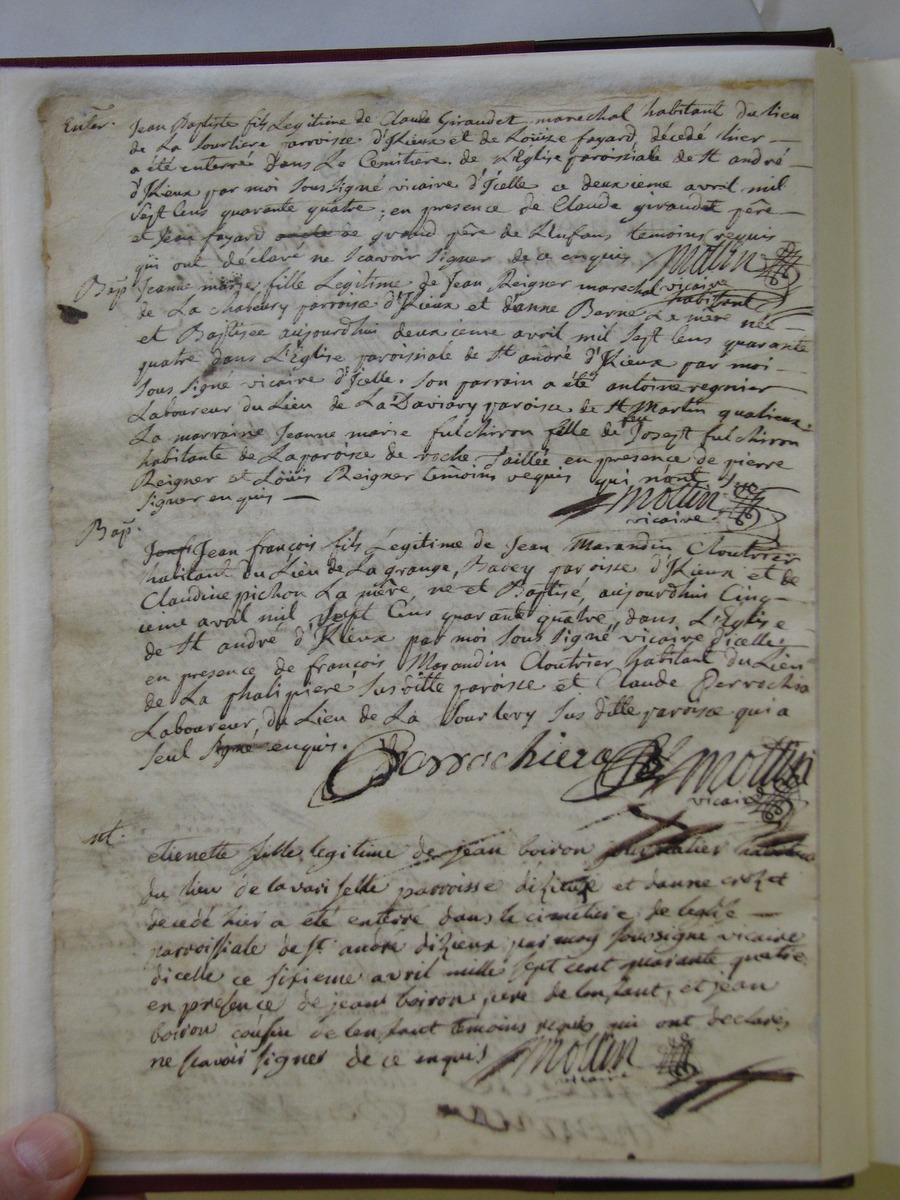 Enter. Jean Baptiste fils Legitime de Claude Giraudet marechal habitant du lieu
de La Sourliere parroisse d'Izieux et de Louize fayard décédé hier
a été enterré Dans Le Cemitiere de L'Eglise paroissiale de St andré
d'Izieux par moi Sous Signé vicaire d'Icelle ce deuxieme avril mil
Sept Cens quarante quatre ; en presence de Claude giraudet père
et Jean fayard grand père de L'Enfans temoins requis
qui ont déclaré ne Scavoir Signer de ce enquis Mottin
vicaire
Bap. Jeanne marie fille Legitime de Jean Reigner marechal habitant
de La Chabeury parroise d'Izieux et d'anne Berne La mère née
et Baptisée aujourdhui deuxieme avril mil Sept Cens quarante
quatre dans L'Eglise paroissiale de St andré d'Izieux par moi
Sous Signé vicaire d'Icelle. Son parrain a été antoine regnier
Laboureur du Lieu de La paroisce de St Martin
La marraine Jeanne marie fulchirron fille de feu Joseph fulchirron
habitante de La paroisce de roche Taillée en presence de pierre
Reigner et Loüis Reigner temoins requis qui n'ont Sue
Signer enquis Mottin
vicaire
Bap. Jean françois fils Legitime de Jean Marandin Cloutrier
habitant du Lieu de La grange, paroisce d'Izieux et de
Claudine pichon La mère, ne et Baptisé, aujourdhui Cinq-
ieme avril mil Sept Cens quarante quatre, dans L'Eglise
de St andré d'Izieux par moi Sous Signé vicaire d'icelle
en presence de françois Marandin Cloutrier habitant du Lieu
de La phalipiere Sus ditte paroisce et Claude Perrochia
Laboureur, du Lieu de La Sus ditte paroisce qui a
Seul Signé enquis. Perrochiera Mottin
vicaire
etienette fille legitime de jean boiron
du lieu de parroisse dizieux et danne
decedé hier a eté enterré dans le cimetiere de leglise
parroissiale de St andré dizieux par moy soussigné vicaire
dicelle ce sixieme avril mille sept cent quarante quatre
en presence de jean boiron pere de lenfant, et jean
boiron cousin de lenfant temoins requis qui ont declaré
ne scavoir signer de ce enquis Mottin
vicaire